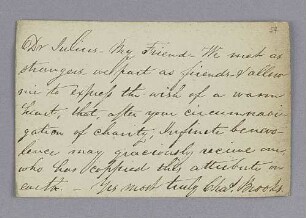 Dr Julius - My Friend - We met as
strangers we part as friends & allow
me to express the wish of a warm
heart, that, after your circumnavi-
gation of charity, Infinite benevo-
lence may graciously recieve one,
who has copied this attribute on
earth. - Yrs most truly Chas. Brooks.